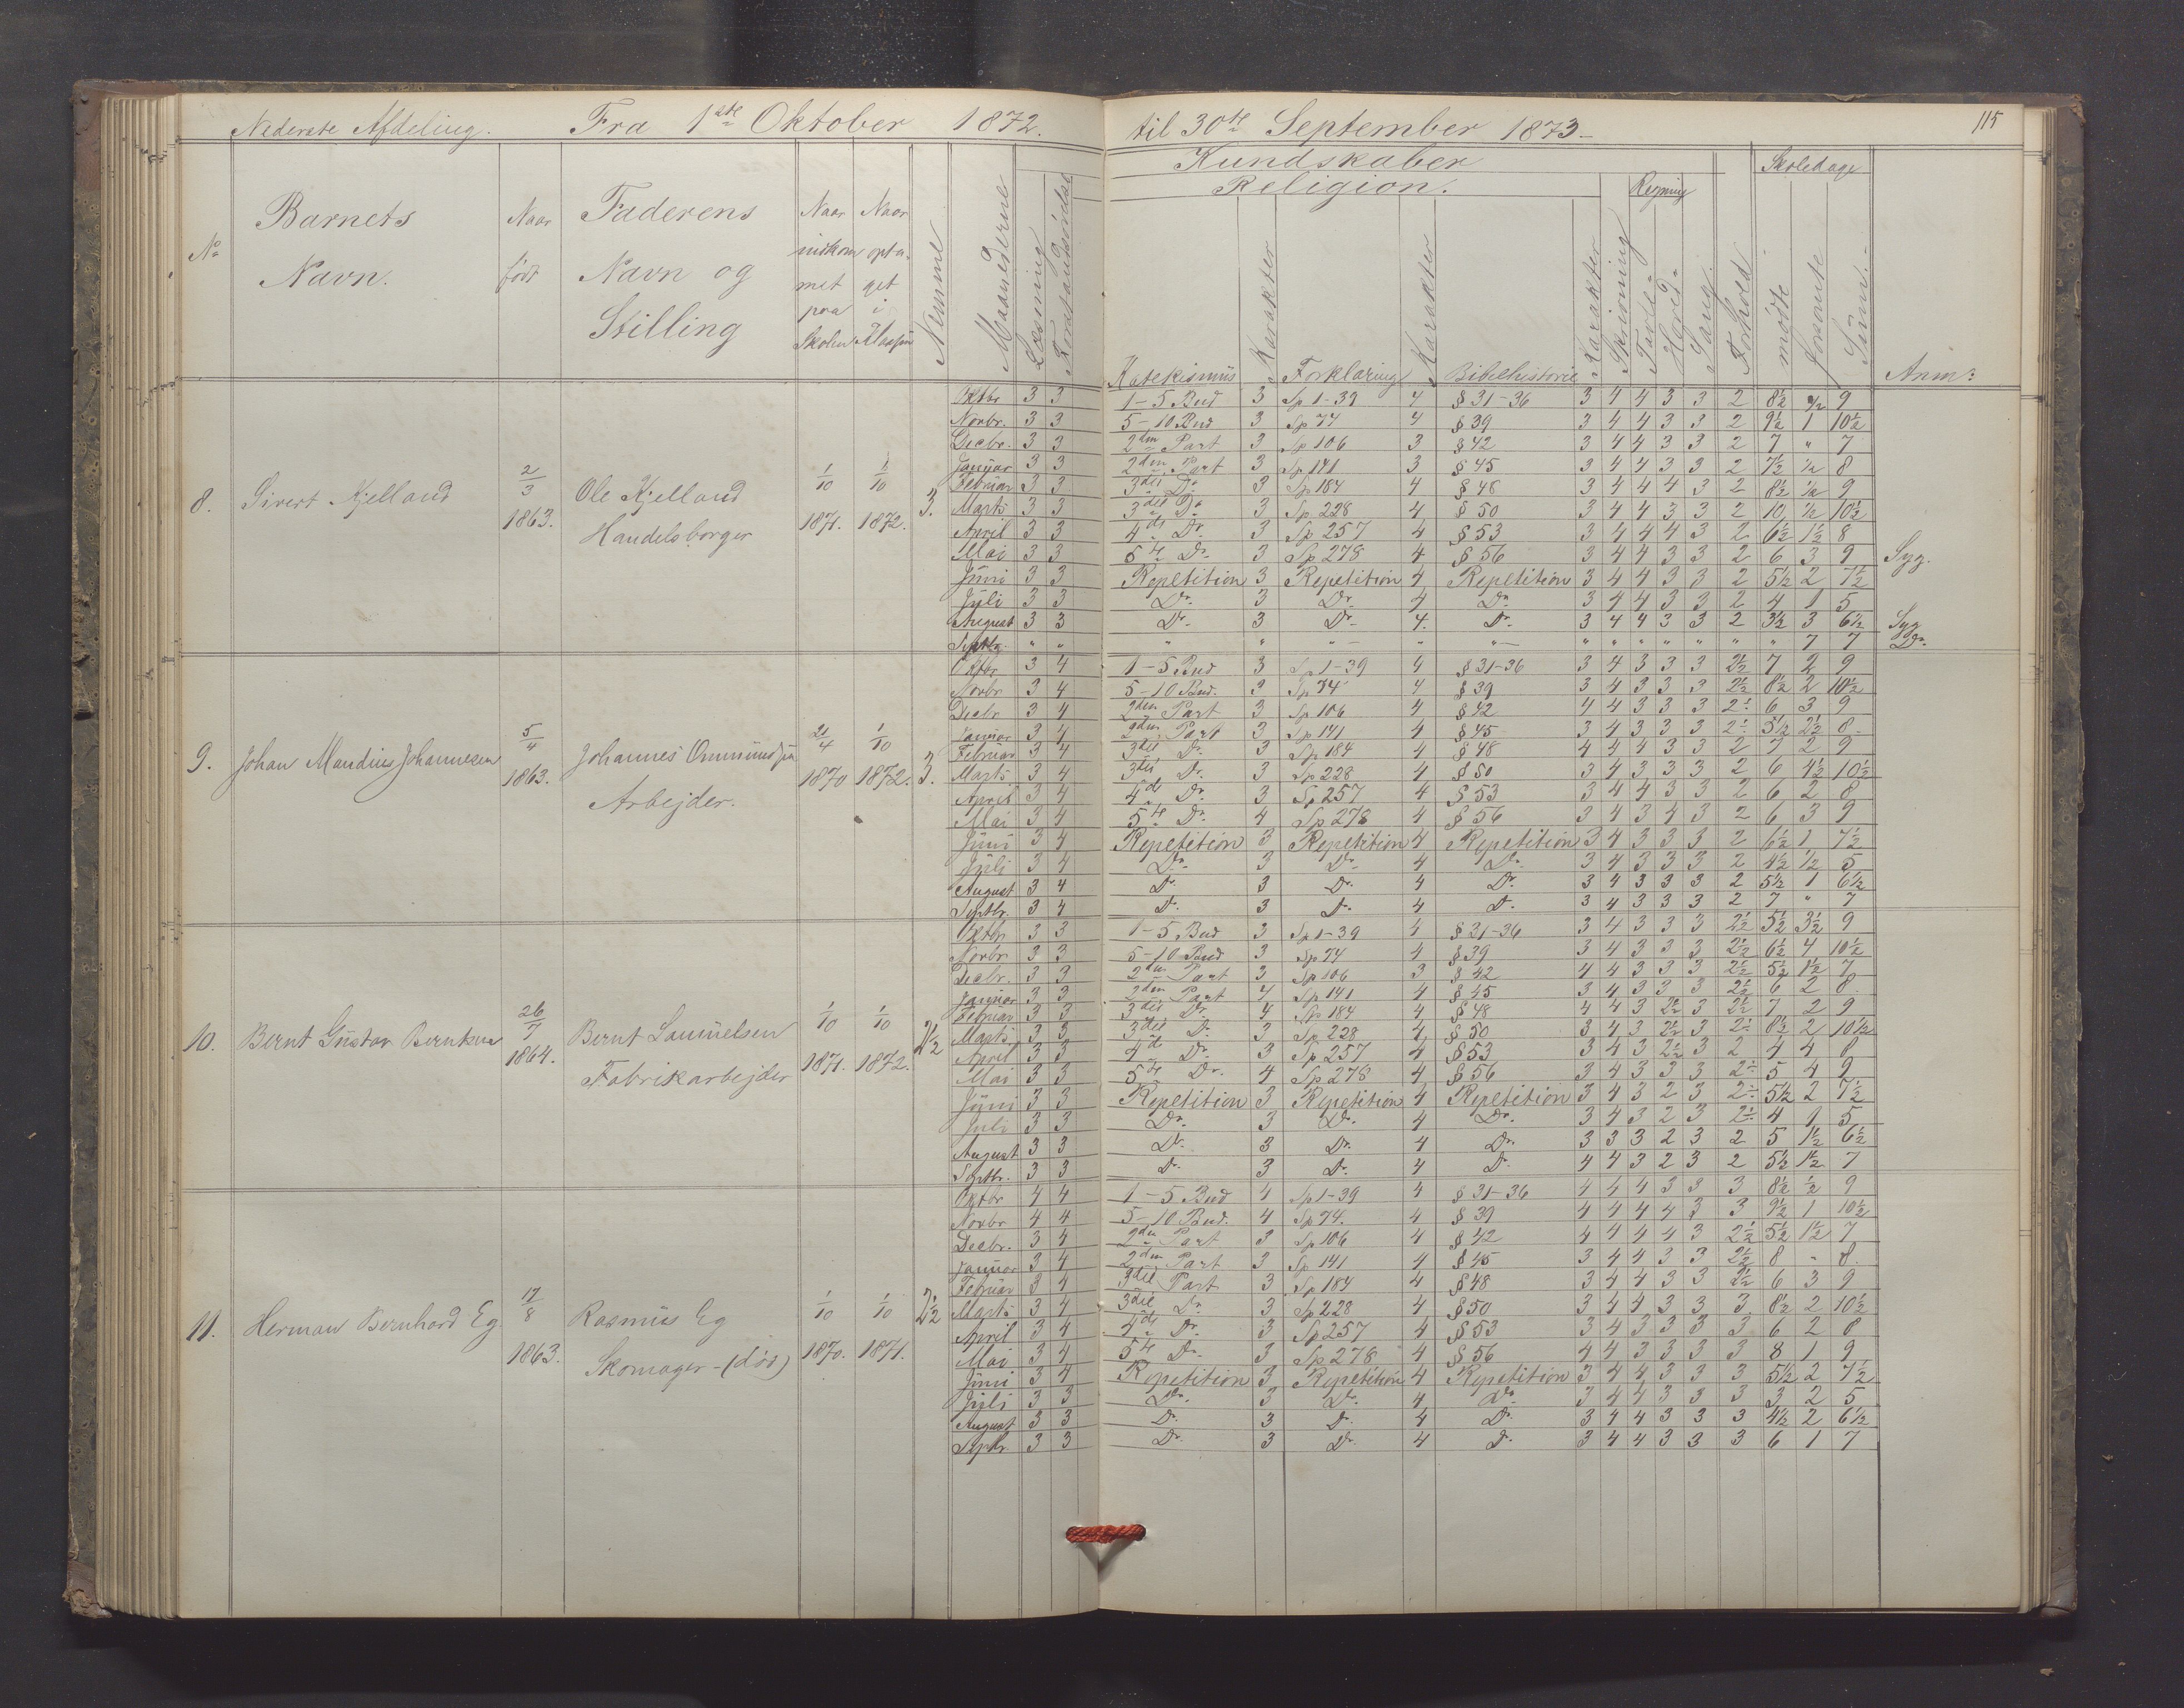 Nederste Afdeling. Fra 1ste Oktober 1872. til 30te September 1873 115
Kundskaber Skoledage
Religion. Regning
No Barnets Navn. Naar født Faderens Navn og Stilling Naar indkommet paa Skolen Naar optaget i Klassen Nemme Maanederne Læsning Forstandsördal
Katekismus Karakter Forklaring Karakter Bibelhistorie Karakter Skrivning Tavle- Hoved- Sang. Forhold mødte forsømte Sum. Anm:
8. Sivert Kjelland 2/3 1863. Ole Kjelland Handelsborger 1/10 1871. 1/10 1872. 3.
Oktbr 3 3 1-5 Bud 3 Sp 1-39 4 § 31-36 3 4 4 3 3 2 8½ ½ 9
Novbr. 3 3 5-10 Bud 3 Sp 74 4 § 39 3 4 4 3 3 2 9½ 1 10½
Decbr. 3 3 2den Part 3 Sp 106 3 § 42 3 4 4 3 3 2 7 " 7
Januar 3 3 2den Part 3 Sp 141 3 § 45 3 4 4 3 3 2 7½ ½ 8
Februar 3 3 3die Do 3 Sp 184 4 § 48 3 4 4 4 3 2 8½ ½ 9
Marts 3 3 3die Do 3 Sp 228 4 § 50 3 4 4 3 3 2 10 ½ 10½
April 3 3 4de Do 3 Sp 257 4 § 53 3 4 4 4 3 2 6½ 1½ 8
Mai 3 3 5te Do 3 Sp 278 4 § 56 3 4 4 3 3 2 6 3 9 Syg.
Juni 3 3 Repetition 3 Repetition 4 Repetition 3 4 4 3 3 2 5½ 2 7½
Juli 3 3 Do 3 Do 4 Do 3 4 4 3 3 2 4 1 5
August 3 3 Do 3 Do 4. Do 3 4 4 3 3 2 3½ 3 6½ Syg
Septbr " " " " " " " " " " " " " " 7 7 Do
9. Johan Mandius Johannesen 5/4 1863. Johannes Ommundsen Arbejder. 21/4 1870 1/10 1872. 3.
Oktbr 3 4 1-5 Bud 3 Sp 1-39 4 § 31-36 3 4 3 3 3 2½ 7 2 9
Novbr 3 4 5-10 Bud. 3 Sp 74 4 § 39 3 4 3 3 3 2½ 8½ 2 10½
Decbr 3 4 2den Part 3 Sp 106 4 § 42 4 4 3 3 3 2÷ 6 3 9
Januar 3 4 2den Part 3 Sp 141 4 § 45 3 4 3 3 3 2÷ 5½ 2½ 8.
Februar 3 4 3die Do 3 Sp 184 4 § 48 4 4 4 3 3 2 7 2 9
Marts 3 4 3die Do 3 Sp 228 4 § 50 3 4 3 3 3 2 6 4½ 10½
April 3 4 4de Do 3 Sp 257 4 § 53 3 4 4 3 3 2 6 2 8
Mai 3 4 5te Do 4 Sp 278 4 § 56 3 4 3 4 3 2 6 3 9
Juni 3 4 Repetition 3 Repetition 4 Repetition 3 4 3 3 3 2 6½ 1 7½
Juli 3 4 Do 3 Do 4 Do 3 4 3 3 3 2 4½ ½ 5
August 3 4 Do 3 Do 4 Do 3 4 3 3 3 2 5½ 1 6½
Septbr. 3 4 Do 3 Do 4 Do 3 4 3 3 3 2 7 " 7
10. Bernt Gustav Berntsen 26/7 1864. Bernt Samuelsen Fabrikarbejder 1/10 1871. 1/10 1872. 2½
Oktbr 3 3 1-5 Bud 3 Sp 1-39 4 § 31-36 3 4 3 3 3 2½ 5½ 3½ 9
Novbr 3 3 5-10 Bud 3 Sp 74 4 § 39 3 4 3 3 3 2½ 6½ 4 10½
Decbr. 3 3 2den Part 3 Sp 106 3 § 42 4 4 3 3 3 2½ 5½ 1½ 7
Januar 3 3 2den Part 4 Sp 141 4 § 45 3 4 3 3 3 2½ 6 2 8.
Februar 3 3 3die Do 4 Sp 184 4 § 48 4 4 3 2½ 3 2½ 7 2 9
Marts 3 3 3die Do 3 Sp 228 4 § 50 3 4 3 2½ 3 2÷ 8½ 2 10½
April 3 3 4de Do 3 Sp 257 4 § 53 3 4 3 2½ 3 2 4 4 8
Mai 3 3 5te Do 4 Sp 278 4 § 56 3 4 3 3 3 2÷ 5 4 9
Juni 3 3 Repetition 3 Repetition 4 Repetition 3 4 3 2 3 2÷ 5½ 2 7½
Juli 3 3 Do 3 Do 4 Do 3 4 3 2 3 2÷ 4 1 5
August 3 3 Do 3 Do 4 Do 3 3 3 2 3 2 5 1½ 6½
Septbr. 3 3 Do 3 Do 4 Do 4 4 3 2 3 2 5½ 1½ 7
11. Herman Bernhard Eg. 17/8 1863. Rasmus Eg Skomager - (død) 1/10 1870. 1/10 1871. 2½
Oktbr 4 4 1-5 Bud 4 Sp 1-39 4 § 31-36 4 4 4 3 3 3 8½ ½ 9
Novbr 4 4 5-10 Bud. 4 Sp 74. 4 § 39 4 4 4 4 3 3 9½ 1 10½
Decbr. 3 4 2den Part 3 Sp 106 4 § 42 4 4 4 4 3 2½ 5½ 1½ 7
Januar 3 4 2den Part 3 Sp 141 4 § 45 3 4 4 3 3 2½ 8 " 8.
Februar 3 4 3die Part 3 Sp 184 4 § 48 3 4 4 3 3 2½ 6 3 9
Marts 3 4 3die Do 3 Sp 228 4 § 50 3 4 4 3 3 3 8½ 2 10½
April 3 4 4de Do 3 Sp 257 4 § 53 3 4 3 3 3 3 6 2 8
Mai 3 4 5te Do 3 Sp 278 4 § 56 4 4 3 3 3 3 8 1 9
Juni 3 4 Repetition 3 Repetition 4 Repetition 3 4 4 3 3 3 5½ 2 7½
Juli 3 3 Do 3 Do 4 Do 3 4 4 3 3 3 3 2 5
August 3 3 Do 3 Do 4 Do 3 4 4 3 3 3 4½ 2 6½
Septbr. 3 3 Do 3 Do 4 Do 3 4 4 3 3 3 6 1 7